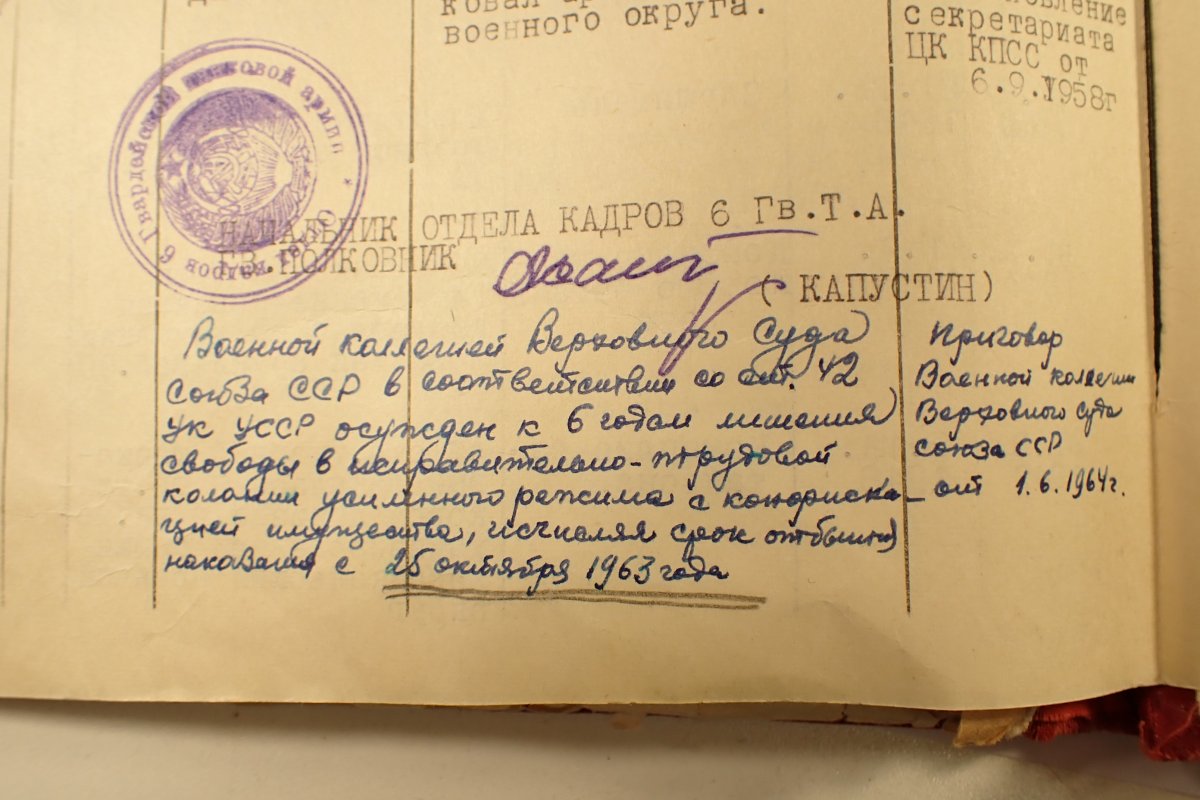 военного округа.
секретариата
ЦК КПСС от
6.9.1958г
6 Гвардейской танковой армии * Отдел кадров
НАЧАЛЬНИК ОТДЕЛА КАДРОВ 6 Гв.Т.А.
ГВ.ПОЛКОВНИК
( КАПУСТИН)
Военной коллегией Верховного Суда
Союза ССР в соответствии со ст. 42
УК УССР осужден к 6 годам лишения
свободы в исправительно-трудовой
колонии усиленного режима с конфиска-
цией имущества, исчисляя срок отбытия
наказания с 25 октября 1963 года
Приговор
Военной коллегии
Верховного суда
союза ССР
от 1.6.1964г.